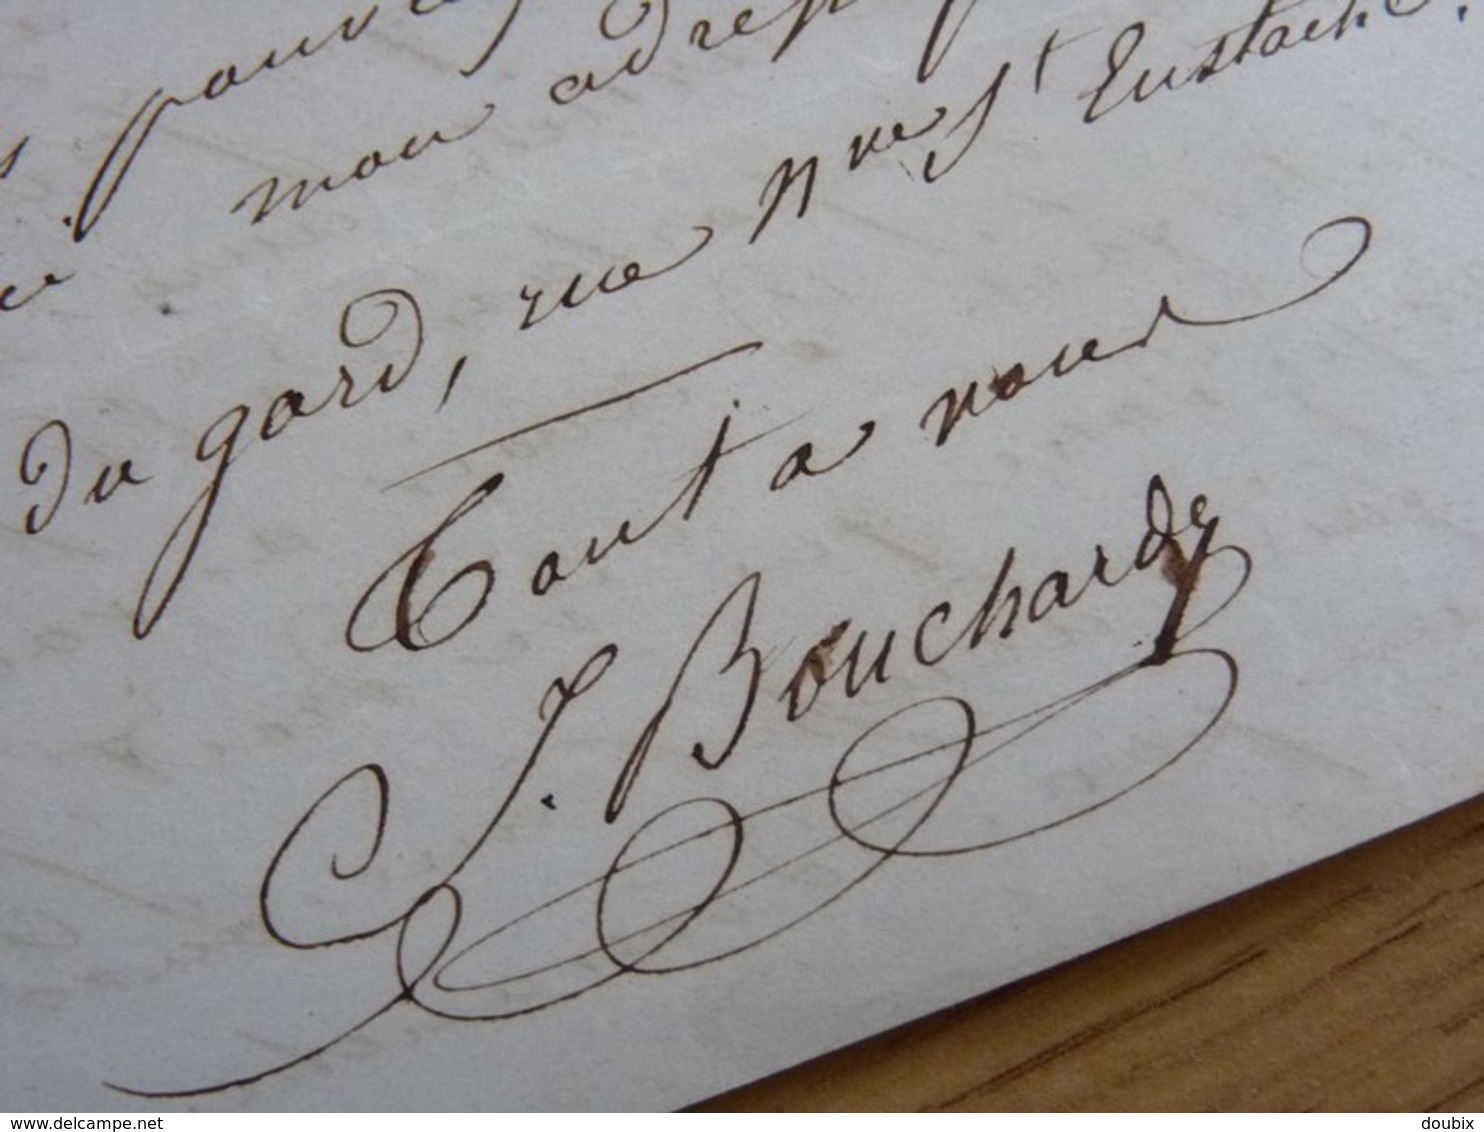 mon adresse
du gard, rue nve St Eustache.
Tout a vous
J. Bouchardy
delcampe.net
doubix